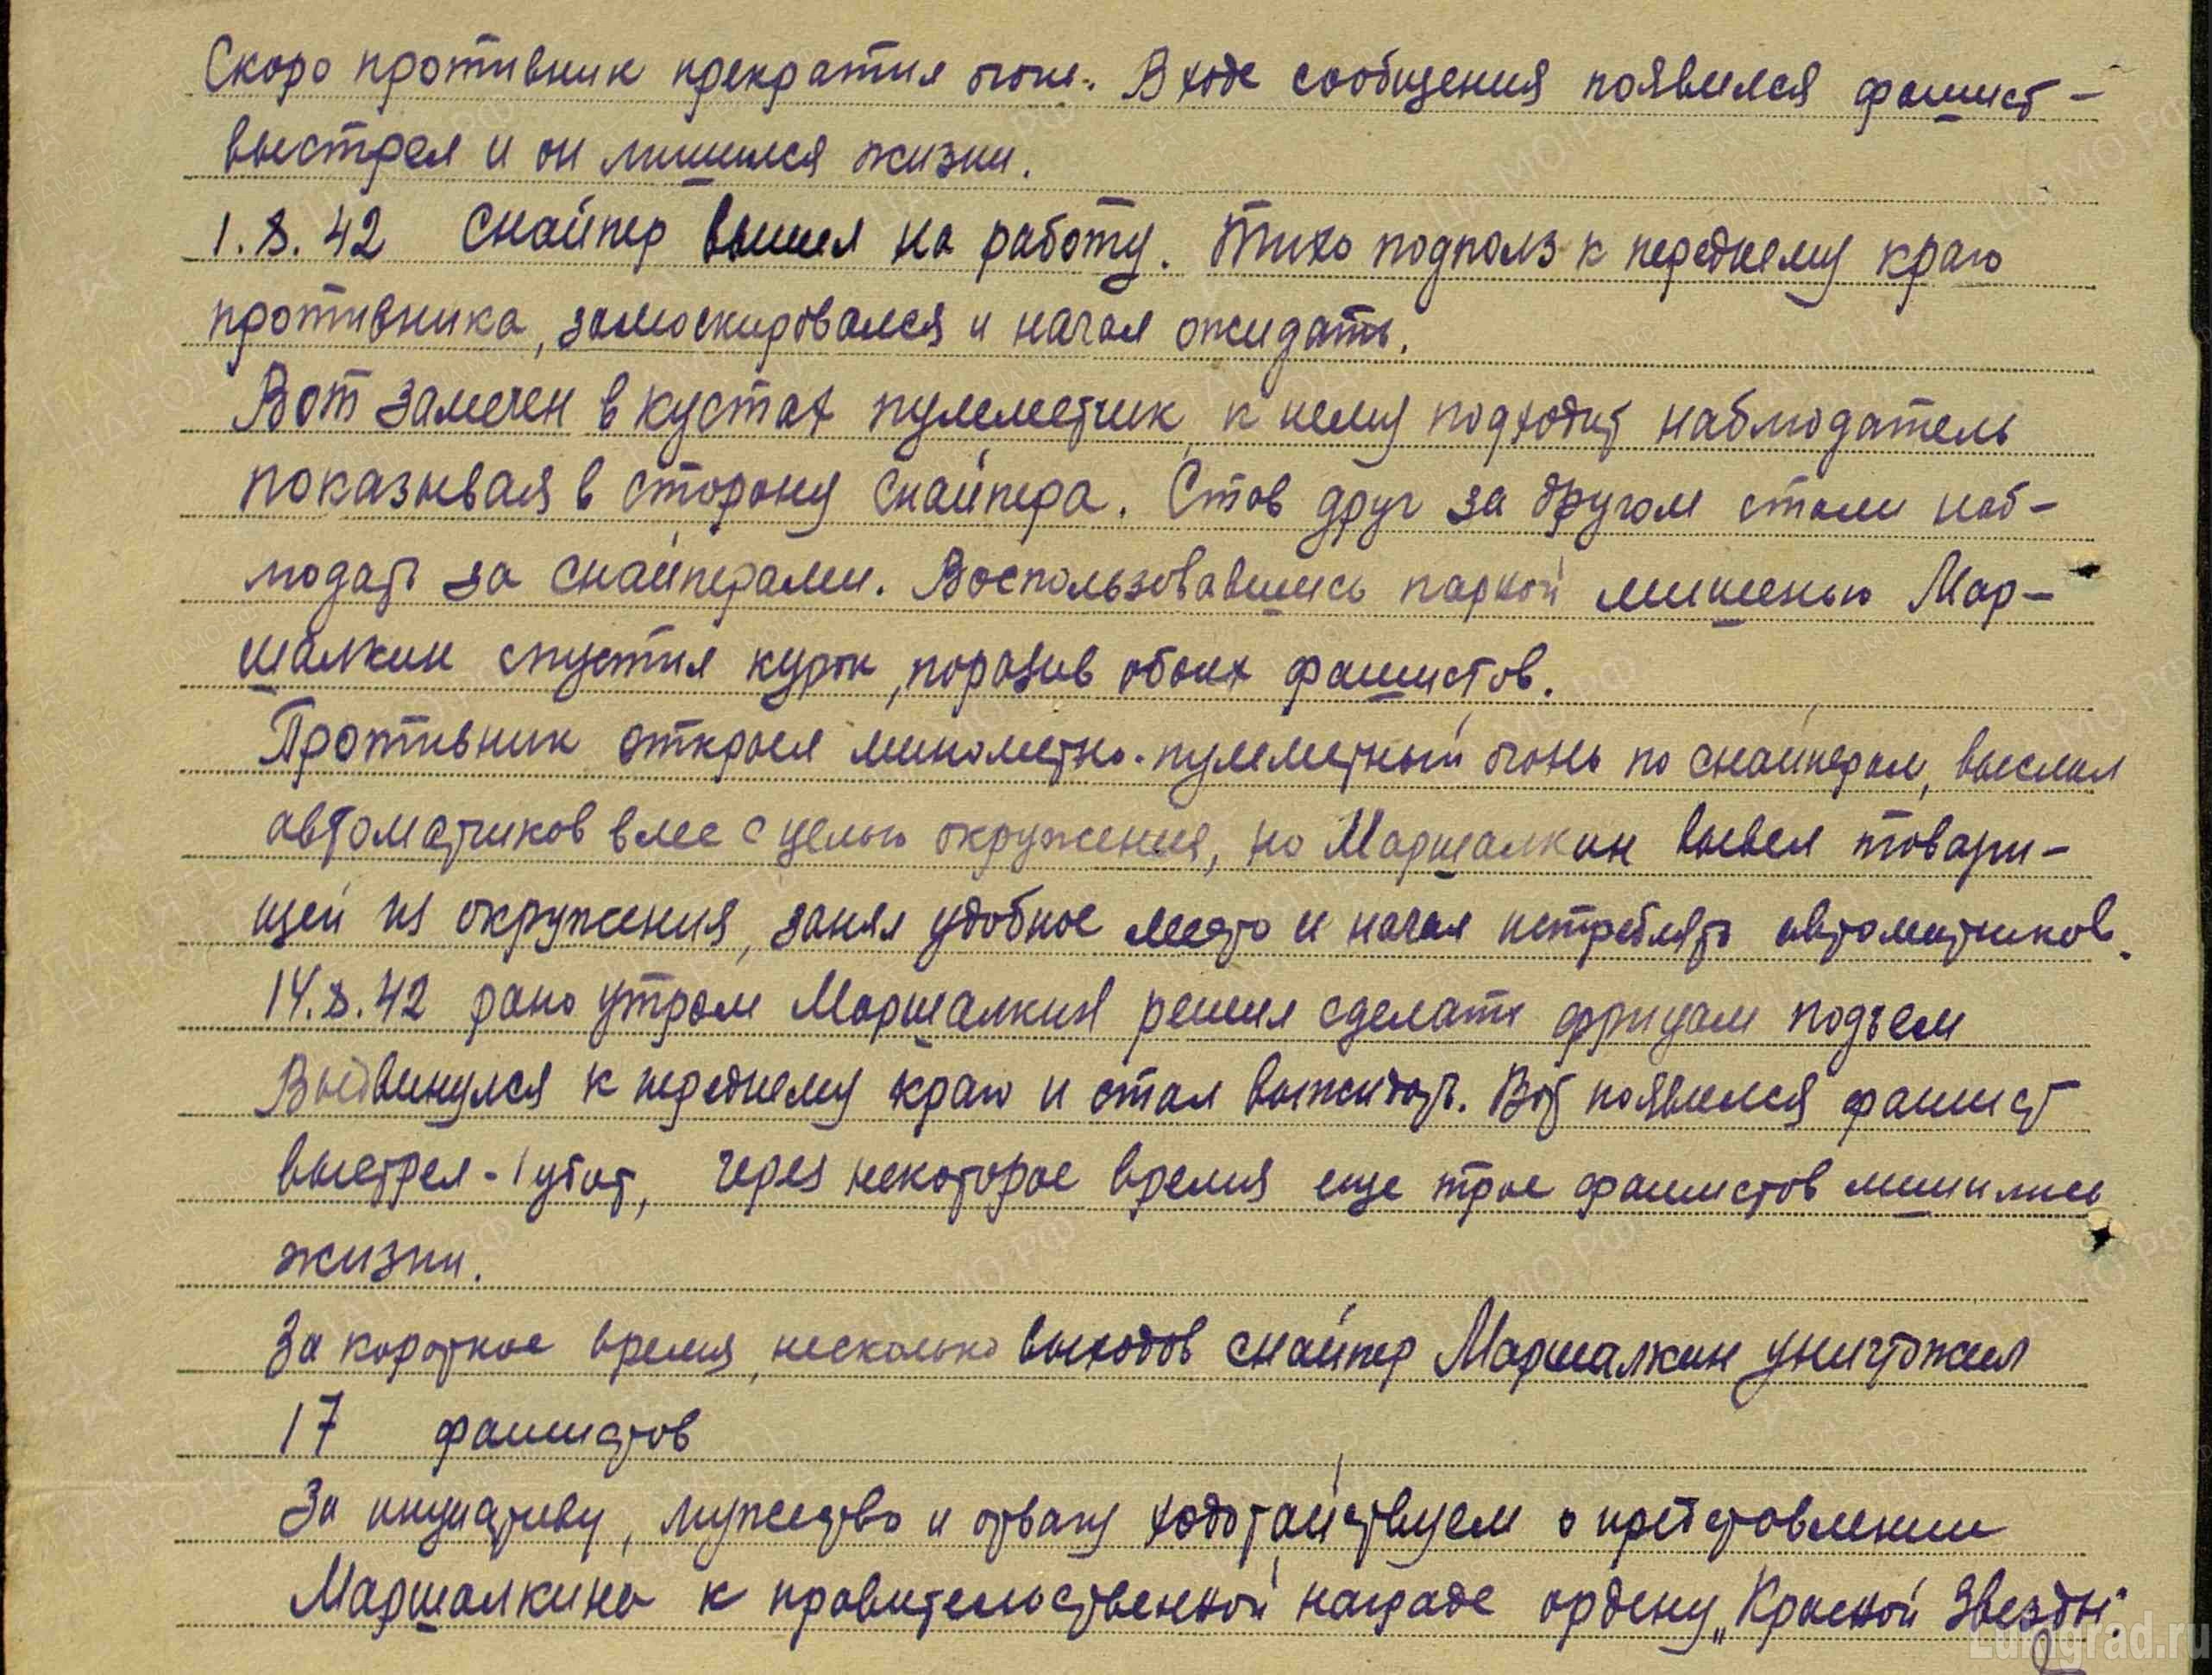 Скоро противник прекратил огонь. В ходе сообщения появился фашист –
выстрел и он лишился жизни.
1.8.42 Снайпер вышел на работу. Тихо подполз к переднему краю
противника, замоскировался и начал ожидать.
Вот замечен в кустах пулеметчик, к нему подходит наблюдатель
показывая в сторону снайпера. Став друг за другом стали наб-
людать за снайперами. Воспользовавшись парной мишенью Мар-
шалкин спустил курок, поразив обоих фашистов.
Противник открыл минометно-пулеметный огонь по снайперам, выслал
автоматчиков в лес с целью окружения, но Маршалкин вывел товари-
щей из окружения, занял удобное место и начал истреблять автоматчиков.
14.8.42 рано утром Маршалкин решил сделать фрицам подъем
Выдвинулся к переднему краю и стал выжидать. Вот появился фашист
выстрел - 1 убит, через некоторое время еще трое фашистов лишились
жизни.
За короткое время, несколько выходов снайпер Маршалкин уничтожил
17 фашистов
За инициативу, мужество и отвагу ходотайствуем о представлении
Маршалкина к правительственной награде ордену „Красной Звезды".
Lumgrad.ru